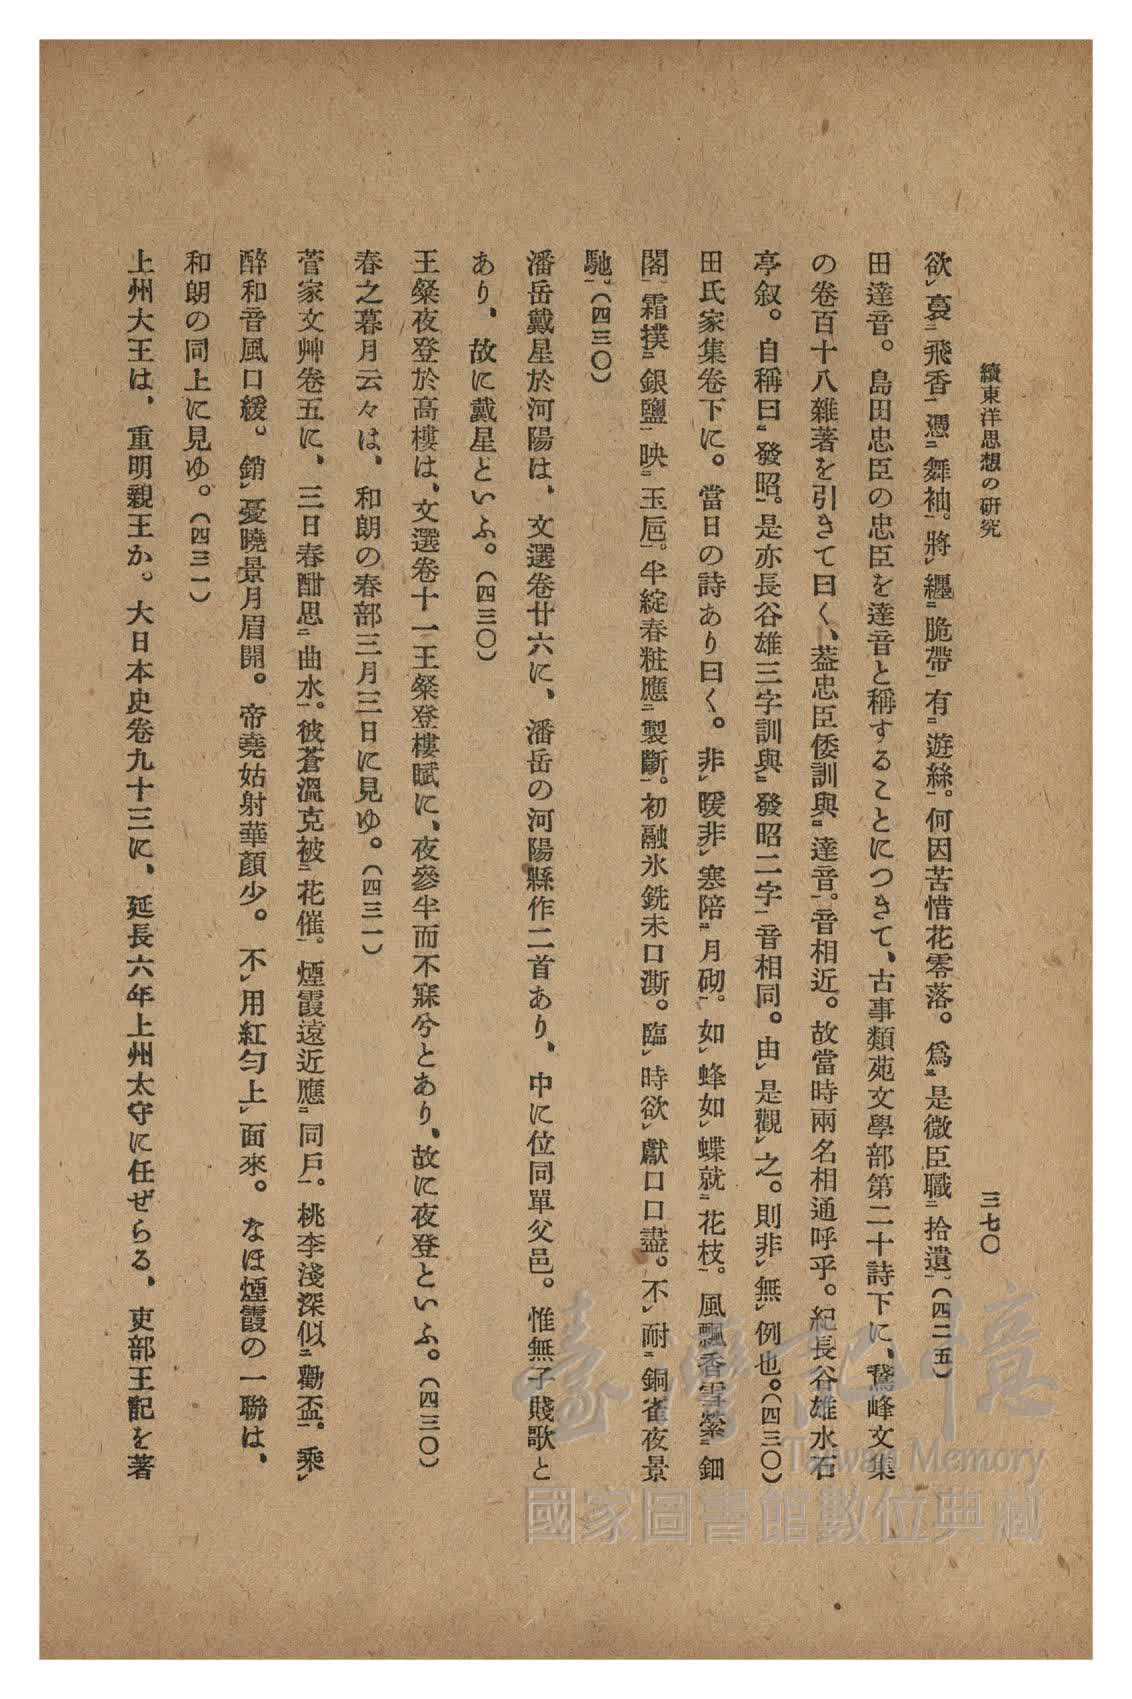 續東洋思想の研究
三七〇
欲㆑裛㆓飛香㆒憑㆓舞袖㆒。將㆑纒㆓脆帶㆒有㆓遊絲㆒。何因苦惜花零落。爲㆔是微臣職㆓拾遺㆒。(四二五)
田達音。島田忠臣の忠臣を達音と稱することにつきて、古事類苑文學部第二十詩下に、鵞峰文集
の卷百十八雜著を引きて曰く、葢忠臣倭訓與㆓達音㆒。音相近。故當時兩名相通呼乎。紀長谷雄水石
亭叙。自稱曰㆓發昭㆒。是亦長谷雄三字訓與㆓發昭二字㆒音相同。由㆑是觀㆑之。則非㆑無㆑例也。(四三〇)
田氏家集卷下に。當日の詩あり曰く。非㆑暖非㆑寒陪㆓月砌㆒。如㆑蜂如㆑蝶就㆓花枝㆒。風飄香雪縈㆓鈿
閣㆒、霜撲㆓銀鹽㆒映㆓玉巵㆒。半綻春粧應㆓製斷㆒。初融氷銑未口澌。臨㆑時欲㆑獻口口盡。不㆑耐㆓銅雀夜景
馳㆒。(四三〇)
潘岳戴星於河陽は、文選卷廿六に、潘岳の河陽縣作二首あり、中に位同單父邑。惟無子賤歌と
あり、故に戴星といふ。(四三〇)
王粲夜登於高樓は、文選卷十一王粲登樓賦に、夜參半而不寐兮とあり、故に夜登といふ。(四三〇)
春之暮月云々は、和朗の春部三月三日に見ゆ。(四三一)
菅家文艸卷五に、三日春酣思㆓曲水㆒。彼蒼溫克被㆓花催㆒。煙霞遠近應㆓同戶㆒。桃李淺深似㆓勸盃㆒。乘㆑
醉和音風口緩。銷㆑憂曉景月眉開。帝堯姑射華顏少。不㆑用紅匀上㆑面來。なほ煙霞の一聯は、
和朗の同上に見ゆ。(四三一)
上州大王は、重明親王か。大日本史卷九十三に、延長六年上州太守に任ぜらる、吏部王記を著
臺灣記憶
Taiwan Memory
國家圖書館數位典藏